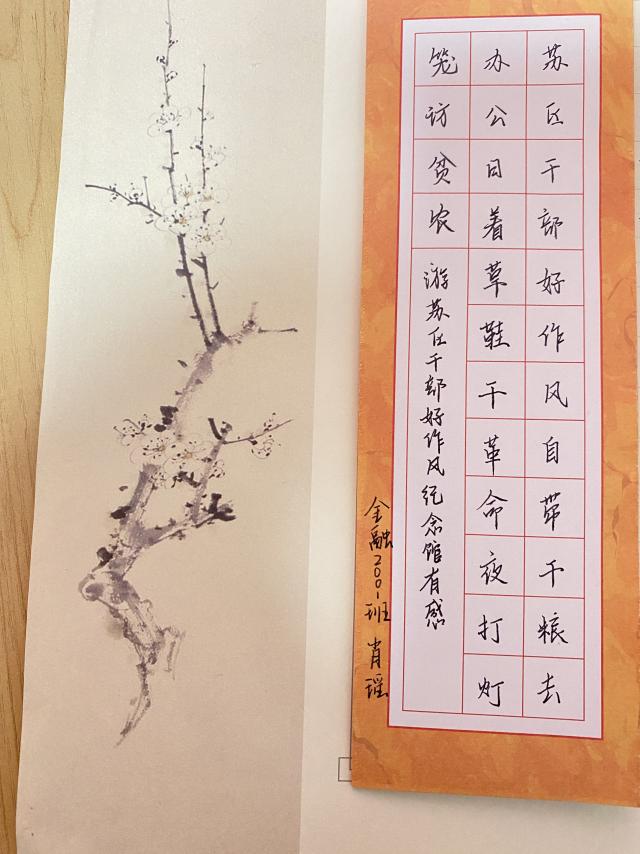 苏区干部好作风自带干粮去
办公日着草鞋干革命夜打灯
笼访贫农
游苏区干部好作风纪念馆有感
金融2001班 肖瑶